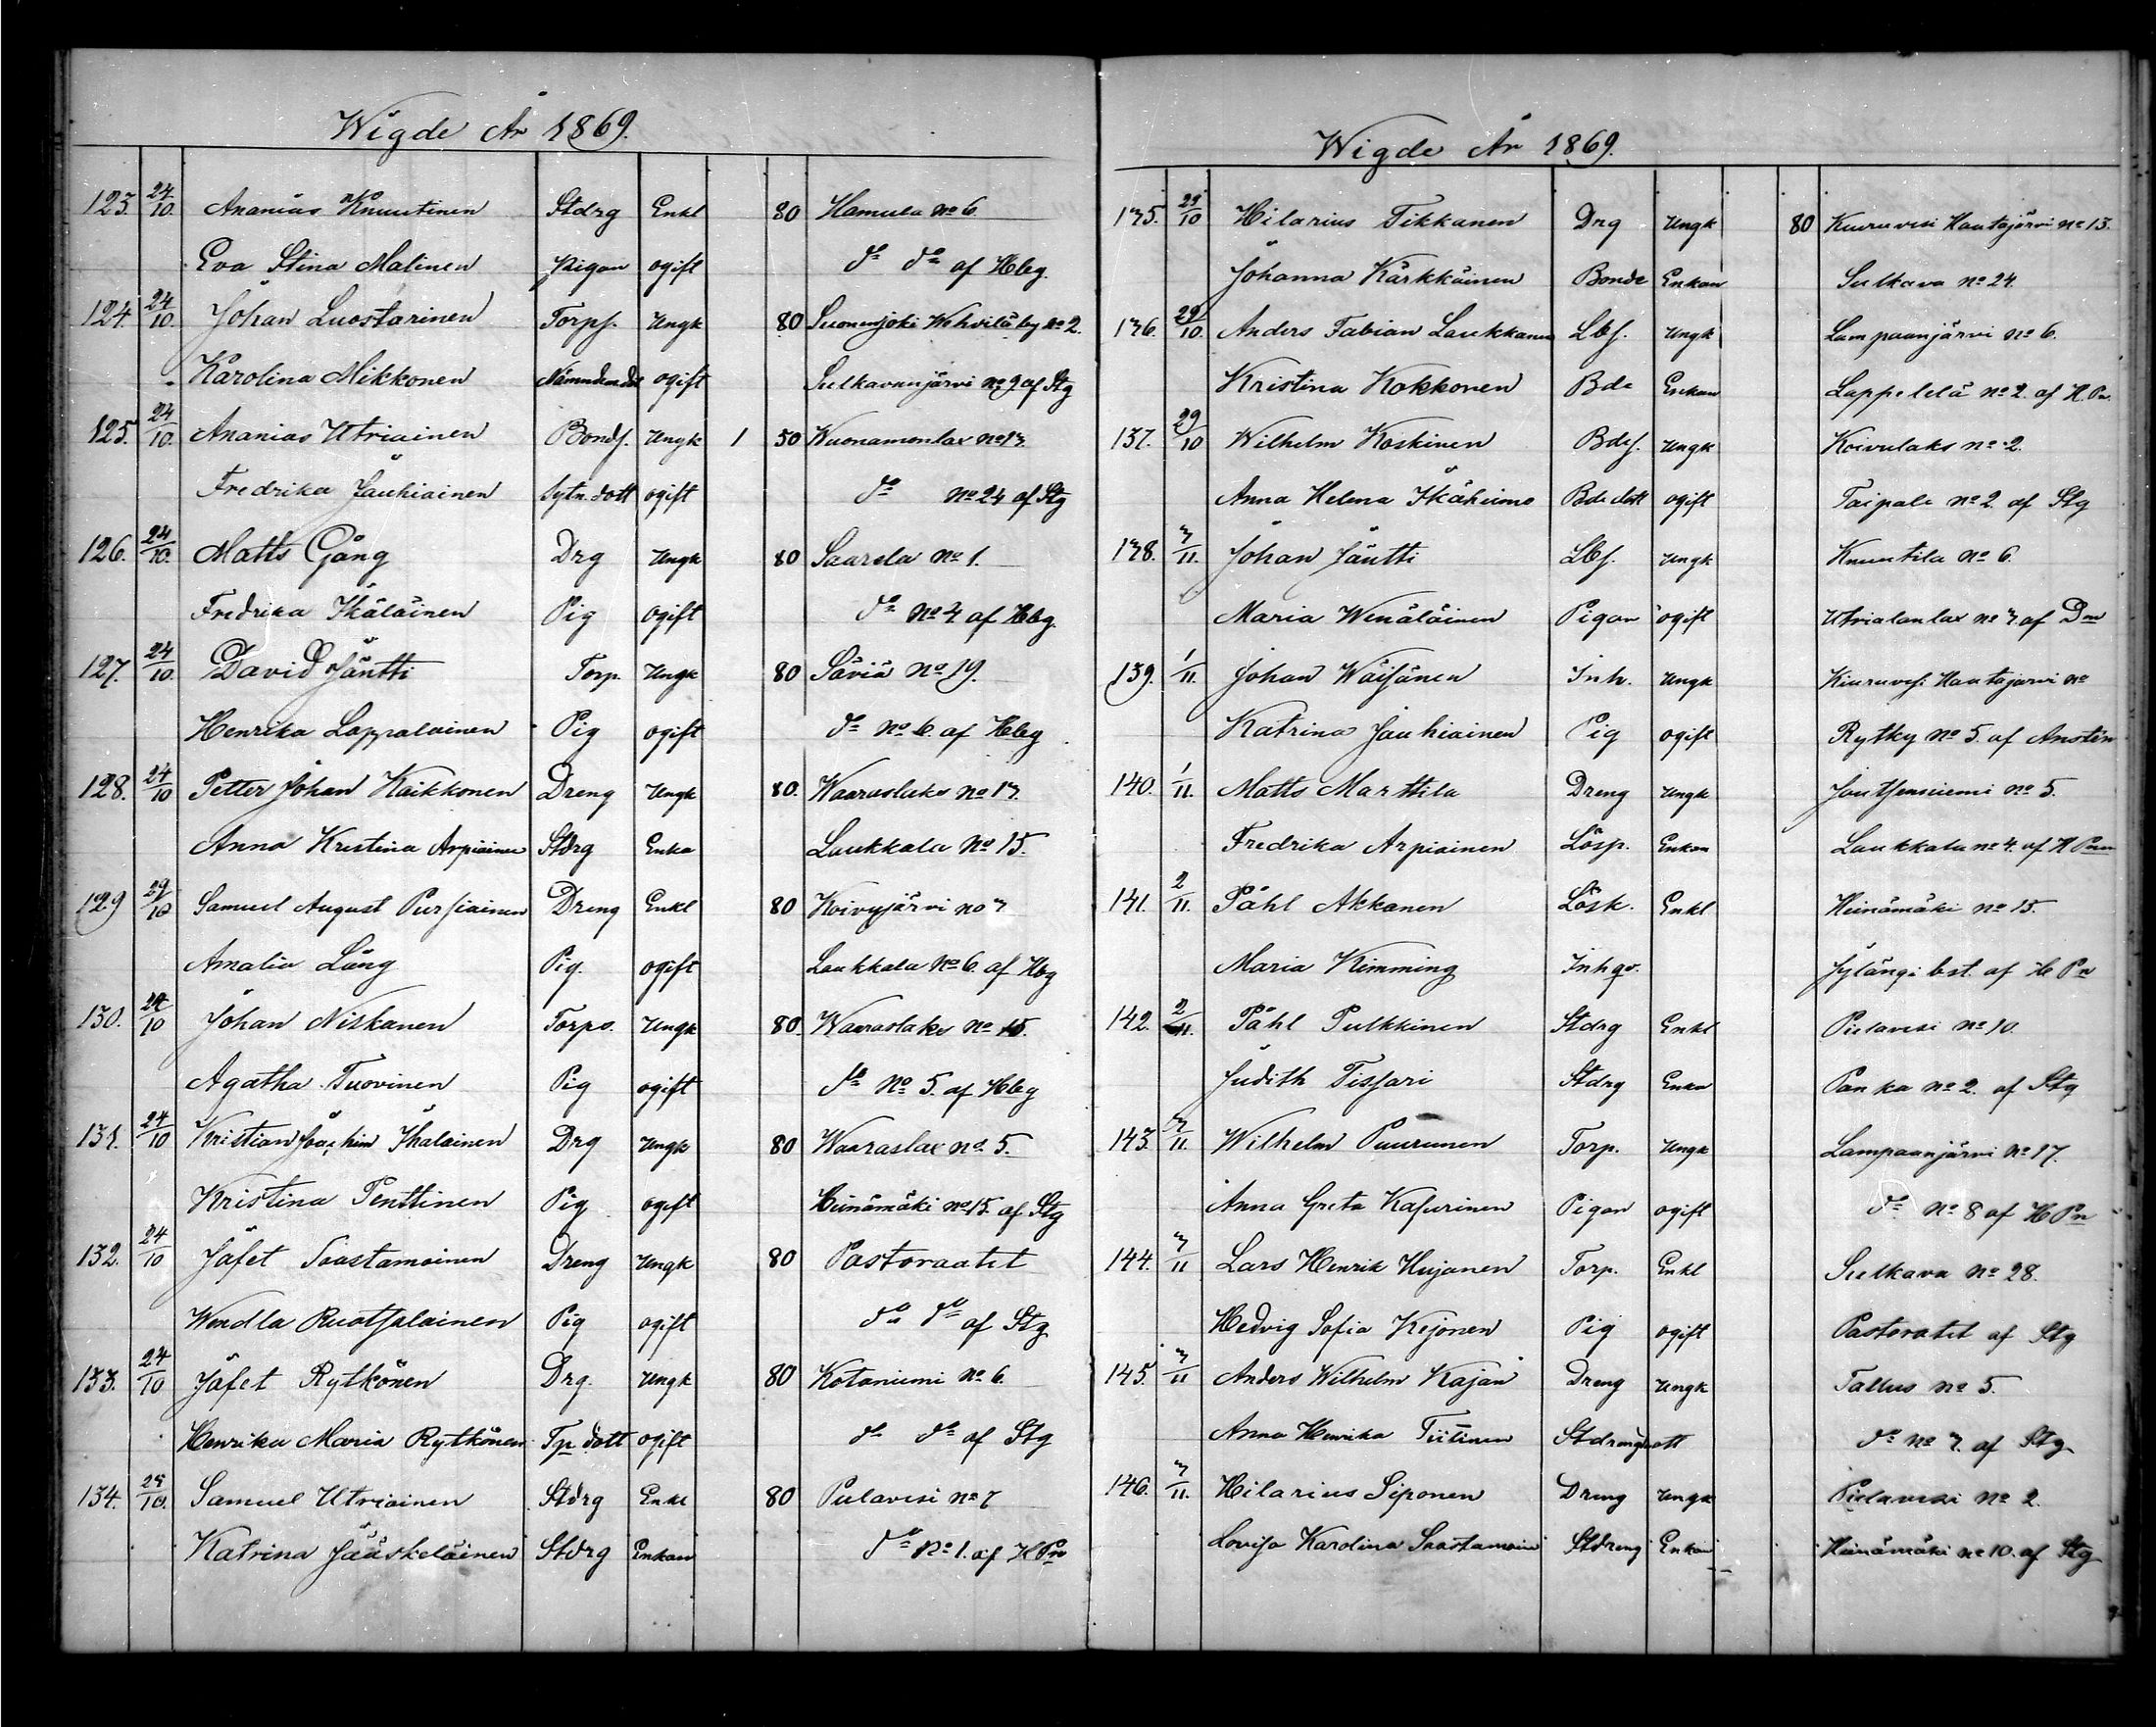 Wigde År 1869.
123. 24/10. Ananias Knuutinen Stdrg Enkl 80 Hamula no 6.
Eva Stina Malinen Pigan ogift do do af Hbg.
124. 24/10. Johan Luostarinen Torps. Ungk 80 Suonenjoki Wehvilä by no 2.
Karolina Mikkonen Nämndem dot ogift Sulkavanjärvi no 9 af Stg
125. 24/10. Ananias Utriainen Bonds. Ungk 1 50 Wuonamonlax no 13.
Fredrika Jauhiainen Sytn. dott ogift do no 24 af Stg
126. 24/10. Matts Gång Drg Ungk 80 Saarela no 1.
Fredrika Ikäläinen Pig ogift do no 4 af Hbg.
127. 24/10. David Jäntti Torp. Ungk 80 Säviä no 19.
Henrika Lappalainen Pig ogift do no 6. af Hbg
128. 24/10 Petter Johan Kaikkonen Dreng Ungk 80. Waaraslaks no 13.
Anna Kristina Arpiainen Stdrg Enka Laukkala no 15.
129 29/10 Samuel August Pursiainen Dreng Enkl 80 Koivujärvi no 3
Amalia Lång Pig. ogift Laukkala no 6. af Hbg
130. 24/10 Johan Niskanen Torps. Ungk 80. Waaraslaks no 15.
Agatha Tuovinen Pig ogift do no 5. af Hbg
131. 24/10 Kristian Joachim Ihalainen Drg Ungk 80 Waaraslax no 5.
Kristina Penttinen Pig ogift Heinämäki no 15. af Stg
132. 24/10 Jafet Saastamoinen Dreng Ungk 80 Pastoraatet
Wendla Ruotsalainen Pig ogift do do af Stg
133. 24/10 Jafet Rytkönen Drg. Ungk 80 Kotaniemi no 6.
Henrika Maria Rytkönen Tp dott ogift do do af Stg
134. 25/10. Samuel Utriainen Stdrg Enkl 80 Pielavesi no 7
Katrina Jääskeläinen Stdrg Enkan do no 1. af H Pn
Wigde År 1869.
135. 25/10 Hilarius Tikkanen Drg Ungk 80 Kiuruvesi Hautajärvi no 13.
Johanna Kärkkäinen Bonde Enkan Sulkava no 24.
136. 29/10. Anders Fabian Laukkanen Lbs. Ungk Lampaanjärvi no 6.
Kristina Kokkonen Bde Enkan Lappetelä no 2. af H. Pn.
137. 29/10 Wilhelm Koskinen Bdes. Ungk Koivulaks no 2.
Anna Helena Ikäheimo Bde dott ogift Taipale no 2. af Stg
138. 3/11. Johan Jäntti Lbs. Ungk Knuutila no 6.
Maria Wenäläinen Pigan ogift Utrialanlax no 3 af Dm
139. 1/11. Johan Wäisänen Inh. Ungk Kiuruvesi Hautajärvi no
Katrina Jauhiainen Pig ogift Rytky no 5. af Anstén
140. 1/11. Matts Marttila Dreng Ungk Joutsenniemi no 5.
Fredrika Arpiainen Lösp. Enkan Laukkala no 4. af H Pnn
141. 2/11. Påhl Akkanen Lösk. Enkl Heinämäki no 15.
Maria Kimming Inhqv. Jylängi bst. af H Pn
142. 2/11. Påhl Pulkkinen Stdrg Enkl Pielavesi no 10.
Judith Tissari Stdrg Enka Panka no 2. af Stg
143. 3/11. Wilhelm Puurunen Torp. Ungk Lampaanjärvi no 17.
Anna Greta Kasurinen Pigan ogift do no 8 af H Pn
144. 3/11 Lars Henrik Hujanen Torp. Enkl Sulkava no 28.
Hedvig Sofia Kejonen Pig ogift Pastoratet af Stg
145. 3/11 Anders Wilhelm Kajan Dreng Ungk Tallus no 5.
Anna Henrika Tiitinen Stdrengdott do no 7. af Stg
146. 3/11. Hilarius Siponen Dreng Ungk Pielavesi no 2.
Lovisa Karolina Saastamoin Stdreng Enkan Heinämäki no 10. af Stg